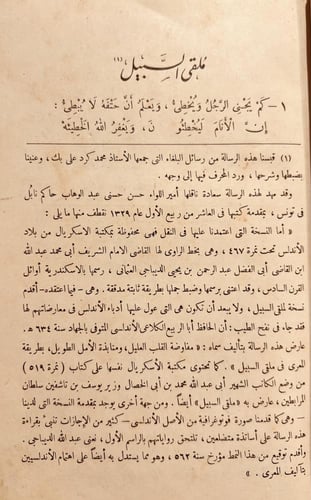 ملقى السبيل (١)
١ – كَمْ يَجْنِي الرَّجُلُ وَيُخْطِئُ ، وَيَعْلَمُ أَنَّ حَتْفَهُ لَا يُبْطِئُ :
إِنَّ الْأَنَامَ لَيُخْطِئُو نَ ، وَيَغْفِرُ اللهُ الْخَطِيئَهْ
(١) قبسنا هذه الرسالة من رسائل البلغاء التى جمعها الأستاذ محمد كرد على بك ، وعنينا
بضبطها وشرحها ، ورد المحرف فيها إلى وجهه .
وقد مهد لهذه الرسالة سعادة ناقلها أمير اللواء حسن حسنى عبد الوهاب حاكم نابل
فى تونس ، بمقدمة كتبها فى العاشر من ربيع الأول عام ١٣٢٩ نقطف منها ما يلى :
« أما النسخة التى اعتمدنا عليها فى النقل فهى محفوظة بمكتبة الاسكريال من بلاد
الأندلس تحت نمرة ٤٦٧ ، وهى بخط الراوى لها القاضى الامام الشريف أبى محمد عبد الله
ابن القاضى أبى الفضل عبد الرحمن بن يحيى الديباجى العثمانى ، رسمها بالاسكندرية أوائل
القرن السادس ، وقد اعتنى برسمها وضبط جملها بطريقة ثابتة مدققة . وهى – فيما أعتقد – أقدم
نسخة لملقى السبيل ، ولا يبعد أن تكون هى التى عول عليها أدباء الأندلس فى معارضاتهم لها
فقد جاء فى نفح الطيب : أن الحافظ أبا الربيع الكلاعى الأندلسى المتوفى بالجهاد سنة ٦٣٤ هـ
عارض هذه الرسالة بتأليف سماه : « مفاوضة القلب العليل ، ومنابذة الأمل الطويل ، بطريقة
المعرى فى ملقى السبيل » . كما تحتوى مكتبة الاسكريال نفسها على كتاب ( نمرة ٥١٩ )
من وضع الكاتب الشهير أبى عبد الله محمد بن أبى الخصال وزير يوسف بن تاشفين سلطان
المرابطين ، عارض به « ملقى السبيل » أيضاً . ومن جهة أخرى يوجد بمقدمة النسخة التى لدينا
– وهى كما قدمنا صورة فوتوغرافية من الأصل الأندلسى – كثير من الإجازات تنبئ بقراءة
هذه الرسالة على أساتذة متضلعين ، تلتحق رواياتهم بالراسم الأول ، نعنى عبد الله الديباجى .
وأقدم توقيع من هذا النمط مؤرخ سنة ٥٦٢ ، وهو مما يستدل به أيضاً على اهتمام الأندلسيين
بتآليف المعرى . »